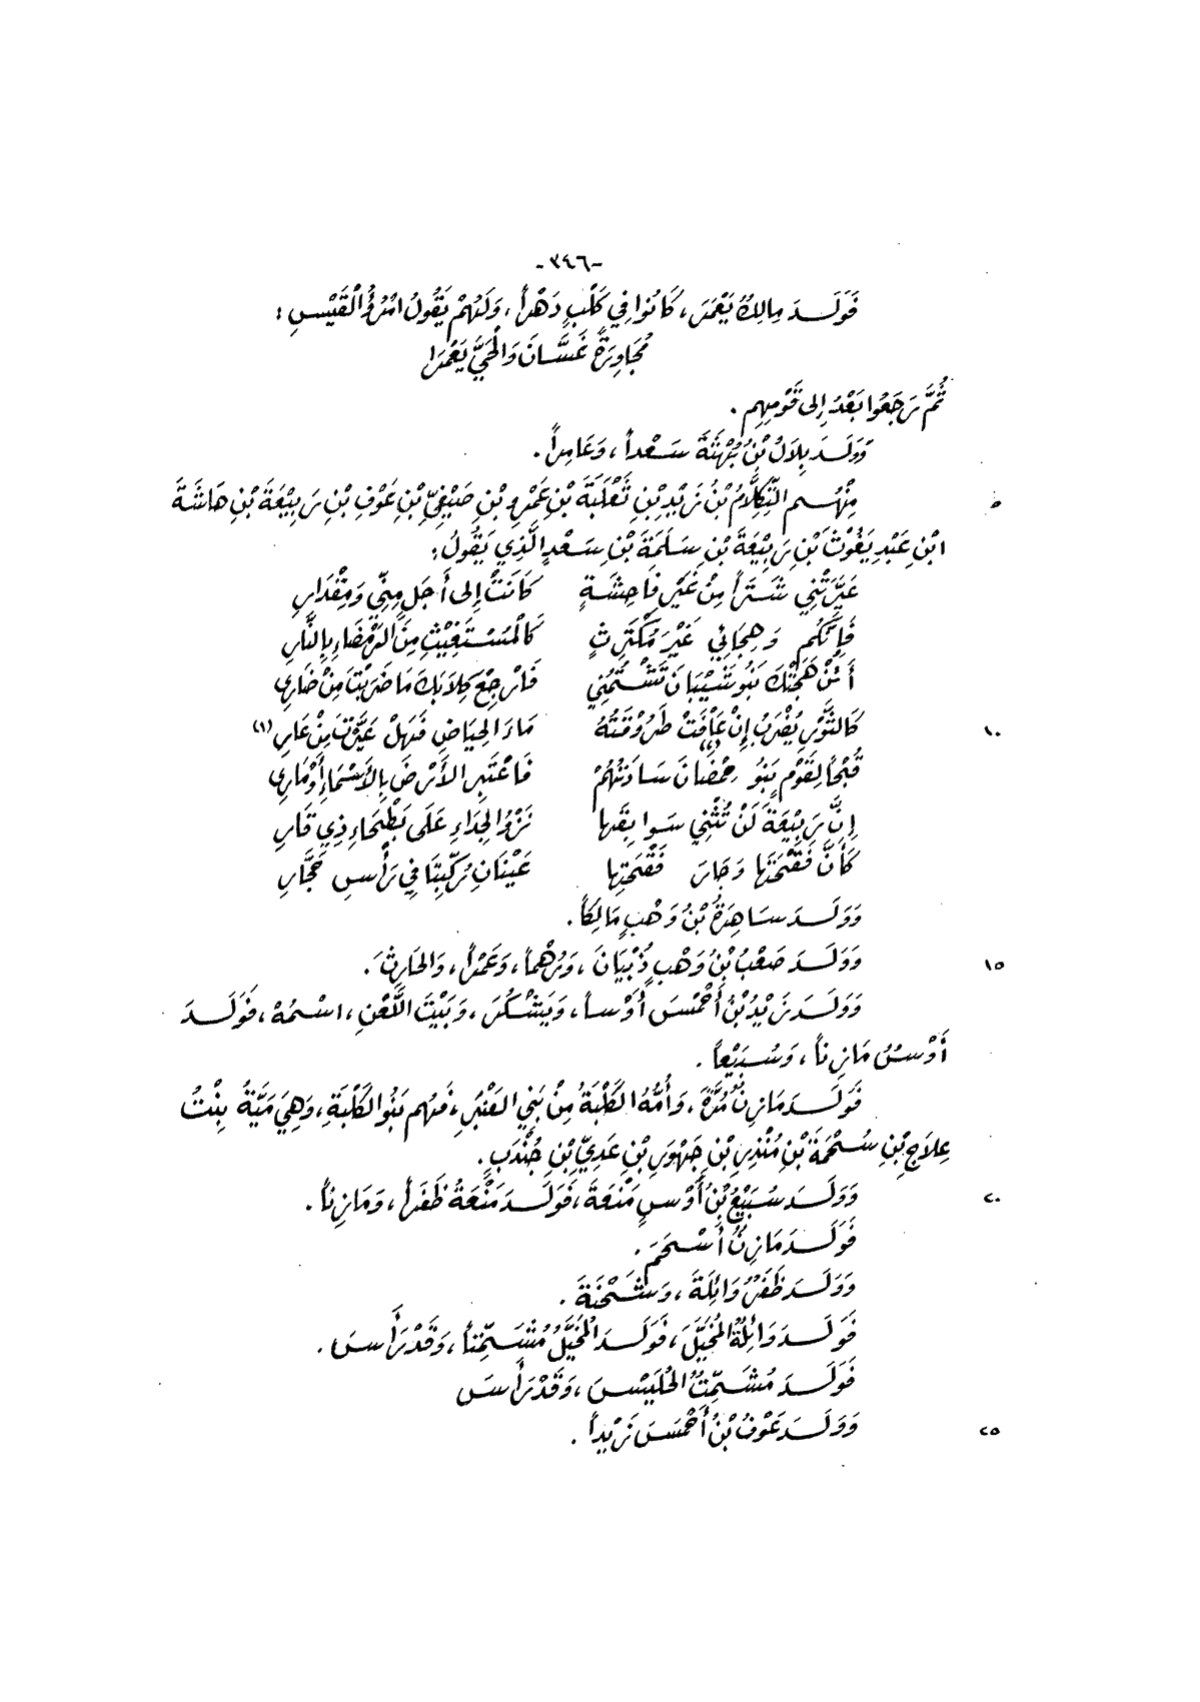 -٣٤٦-
فَوَلَـدَ مَالِكُ يَعْمَرَ ، كَانُوا فِي كَلْبٍ دَهْراً ، وَلَهُمْ يَقُولُ امْرُؤُ الْقَيْسِ :
مُجَاوِرَةً غَسَّانَ وَالْحَيَّ يَعْمُرَا
ثُمَّ رَجَعُوا بَعْدُ إِلى قَوْمِهِم .
وَوَلَـدَ بِلَالُ بْنُ بُهْثَةَ سَـعْداً ، وَعَامِراً .
٥ مِنْهُـم التَّكِلَّامُ بْنُ زَيْدِ بْنِ ثَعْلَبَةَ بْنِ عَمْرِو بْنِ صَيْفِيِّ بْنِ عَوْفِ بْنِ رَبِيْعَةَ بْنِ هَاشَةَ
ابْنِ عَبْدِ يَغُوْثَ بْنِ رَبِيْعَةَ بْنِ سَـلَمَةَ بْنِ سَـعْدٍ الَّذِي يَقُولُ :
عَيَّرْتَنِي شَـتَراً مِنْ غَيْرِ فَاحِشَـةٍ كَانَتْ إِلى أَجَلٍ مِنِّي وَمِقْدَارِ
فَإِنَّكُم وَهِجَائِي غَيْرَ مُكْتَرِثٍ كَالْمُسْـتَغِيْثِ مِنَ الرَّمْضَاءِ بِالنَّارِ
أَئِنْ هَجَتْكَ بَنُو شَـيْبَانَ تَشْـتُمُنِي فَارْجِعْ كِلاَبَكَ مَا ضَرَيْتَ مِنْ ضَارِي
١٠ كَالثَّوْرِ يُضْرَبُ إِنْ عَافَتْ طَرُوْقَتُهُ مَاءَ الحِيَاضِ فَهَلْ عَيَّرْتَ مِنْ عَارِ (١)
قُبْحاً لِقَوْمٍ بَنُو رَمْضَانَ سَـادَتُهُمْ فَاعْتَبِرِ الأَرْضَ بِالأَسْـمَاءِ أَوْ مَارِي
إِنَّ رَبِيْعَةَ لَنْ تُثْنِي سَـوابِقَها نَزْوُ الجِدَاءِ عَلَى بَطْحَاءِ ذِي قَارِ
كَأَنَّ فَقْحَتَها وَجَارَ فَقْحَتِها عَيْنَانِ رُكِّبَتَا فِي رَأْسِ حَجَّارِ
وَوَلَـدَ سَـاهِرَةُ بْنُ وَهْبٍ مَالِكاً .
١٥ وَوَلَـدَ صَعْبُ بْنُ وَهْبٍ ذُبْيَانَ ، وَرُهْماً ، وَعَمْراً ، وَالحَارِثَ .
وَوَلَـدَ زَيْدُ بْنُ أَحْمَسَ أَوْسـاً ، وَيَشْـكُرَ ، وَبَيْتَ اللَّعْنِ ، اسْـمُهُ ، فَوَلَـدَ
أَوْسُ مَازِناً ، وَسُـبَيْعاً .
فَوَلَـدَ مَازِنٌ مُرَّةَ ، وَأُمُّهُ الكَلْبَةُ مِنْ بَنِي العَنْبَرِ ، فَهُم بَنُو الكَلْبَةِ ، وَهِيَ مَيَّةُ بِنْتُ
عِلاَجِ بْنِ سُـحْمَةَ بْنِ مُنْذِرِ بْنِ جَهْوَرِ بْنِ عَدِيِّ بْنِ جُنْدَبٍ .
٢٠ وَوَلَـدَ سُـبَيْعُ بْنُ أَوْسٍ مَنْعَةَ ، فَوَلَـدَ مَنْعَةُ ظَفَراً ، وَمَازِناً .
فَوَلَـدَ مَازِنٌ أَسْـحَمَ .
وَوَلَـدَ ظَفَرٌ وَائِلَةَ ، وَشَـحْنَةَ .
فَوَلَـدَ وَائِلَةُ الْمُخَيَّلَ ، فَوَلَـدَ الْمُخَيَّلُ مُشَـمِّتاً ، وَقَدْ رَأَسَ .
فَوَلَـدَ مُشَـمِّتٌ الحُلَيْسَ ، وَقَدْ رَأَسَ
٢٥ وَوَلَـدَ عَوْفُ بْنُ أَحْمَسَ زَيْداً .